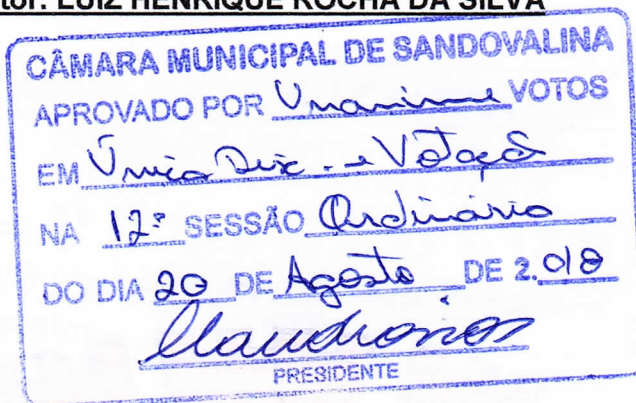 tor: LUIZ HENRIQUE ROCHA DA SILVA
CÂMARA MUNICIPAL DE SANDOVALINA
APROVADO POR Unanime VOTOS
EM Única Disc. e Votação
NA 12ª SESSÃO Ordinário
DO DIA 20 DE Agosto DE 2.018
PRESIDENTE